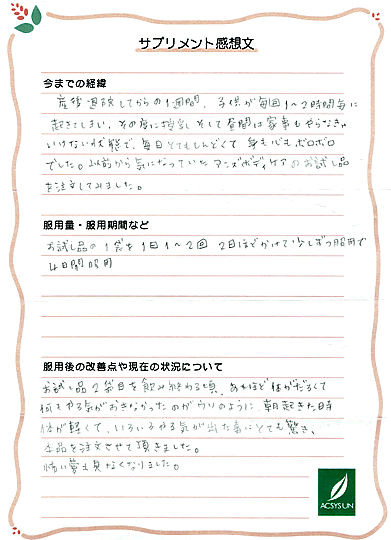 サプリメント感想文
今までの経緯
産後退院してからの1週間、子供が毎回1～2時間毎に
起きてしまい、その度に授乳 そして昼間は家事もやらなきゃ
いけない状態で、毎日とてもしんどくて 身も心もボロボロ
でした。以前から気になっていた アンズボディケアのお試し品
を注文してみました。
服用量・服用期間など
お試し品の1袋を1日1～2回 2日ほどかけて少しずつ服用で
4日間服用
服用後の改善点や現在の状況について
お試し品2袋目を飲み終わる頃、あれほど体がだるくて
何もやる気がおきなかったのがウソのように 朝起きた時
体が軽くて、いろいろやる気が出た事にとても驚き、
本品を注文させて頂きました。
怖い夢も見なくなりました。
ACSYSUN